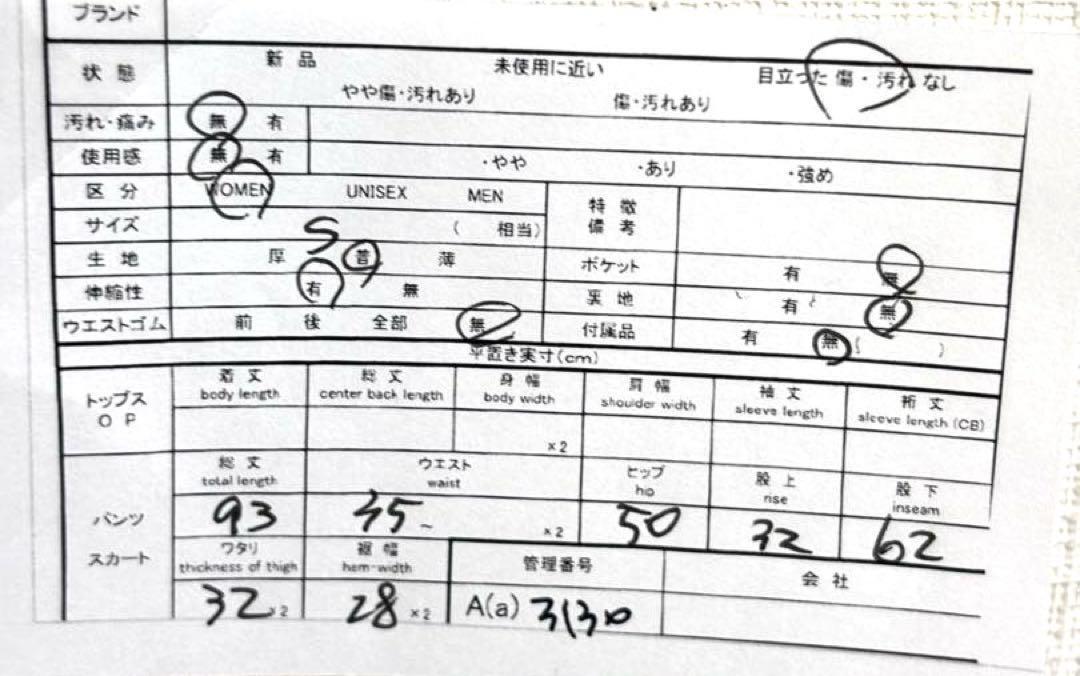 ブランド
状態 新品 未使用に近い 目立った傷・汚れなし
やや傷・汚れあり 傷・汚れあり
汚れ・痛み 無 有
使用感 無 有 ・やや ・あり ・強め
区分 WOMEN UNISEX MEN 特徴
備考
サイズ S ( 相当)
生地 厚 普 薄 ポケット 有 無
伸縮性 有 無 裏地 有 無
ウエストゴム 前 後 全部 無 付属品 有 無 ( )
平置き実寸(cm)
トップス
OP
着丈 総丈 身幅 肩幅 袖丈 裄丈
body length center back length body width shoulder width sleeve length sleeve length (CB)
×2
パンツ
スカート
総丈 ウエスト ヒップ 股上 股下
total length waist hip rise inseam
93 35~ ×2 50 32 62
ワタリ 裾幅 管理番号 会社
thickness of thigh hem-width
32 ×2 28 ×2 A(a) 3130